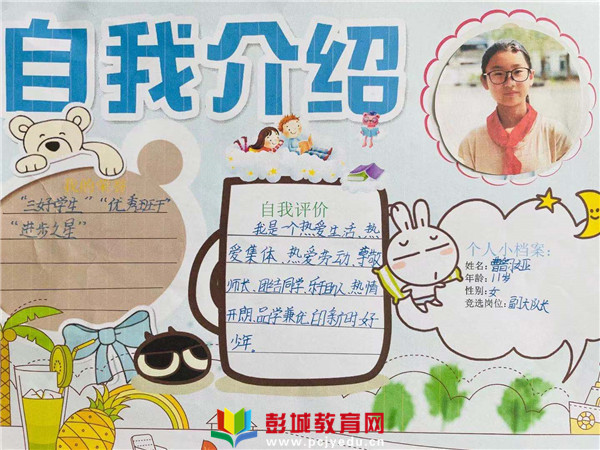 自我介绍
"三好学生" "优秀班干"
"进步之星"
自我评价
我是一个热爱生活、热
爱集体、热爱劳动、尊敬
师长、团结同学、乐于助人、热情
开朗、品学兼优的新时代好
少年。
个人小档案:
姓名:
年龄:11岁
性别:女
竞选岗位:副大队长
彭城教育网
www.pcjyedu.cn